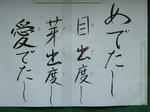 めでたし
目出度し
芽出度し
愛でたし